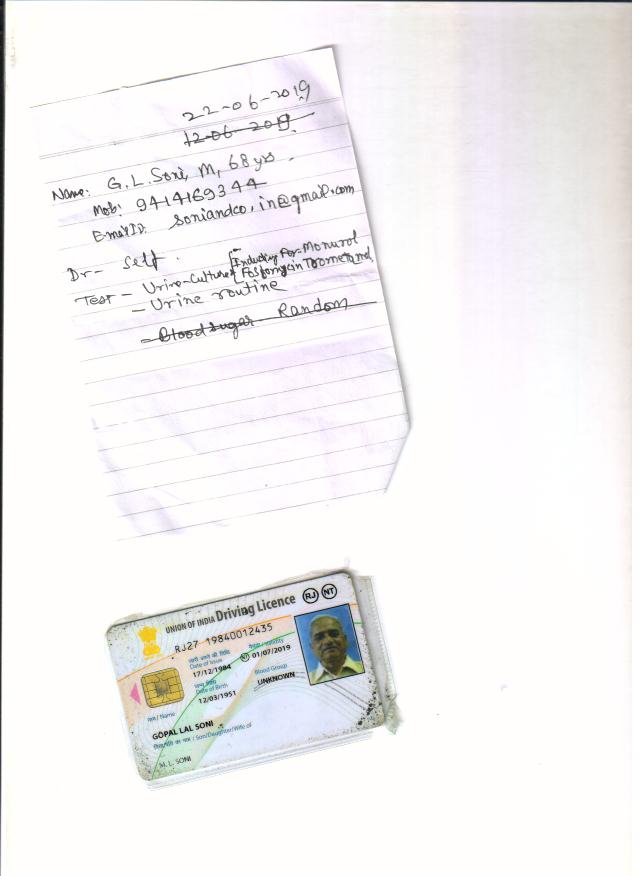 22-06-2019
12-06-2019
Name: G.L. Soni, M, 68 yrs.
Mob: 9414169344
E-mail ID: soniandco.in@gmail.com
Dr- Self.
Test - Urine-Culture [Including For-Monurol
[Fosfomycin Trometanol
- Urine routine
- Blood sugar Random
UNION OF INDIA Driving Licence RJ NT
RJ27 19840012435
जारी करने की तिथि
Date of Issue
17/12/1984
वैधता / Validity
NT 01/07/2019
जन्म तिथि
Date of Birth
12/03/1951
Blood Group
UNKNOWN
नाम / Name
GOPAL LAL SONI
पिता/पति का नाम / Son/Daughter/Wife of
M. L. SONI